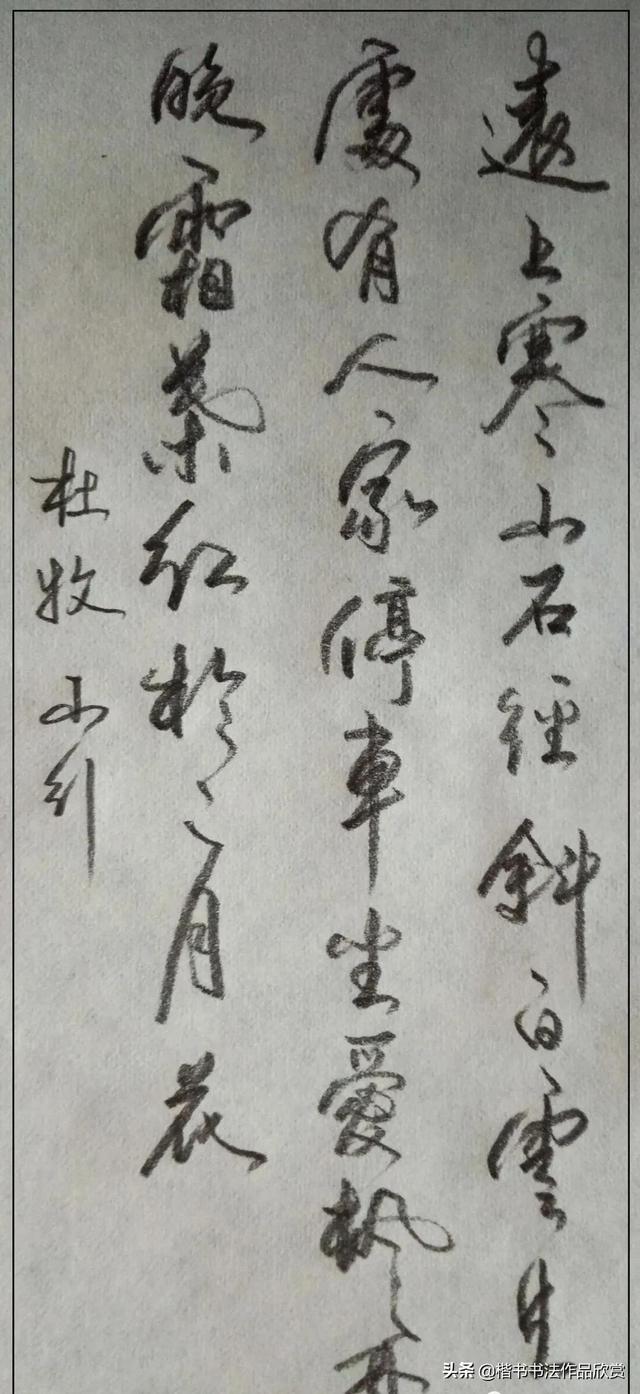 遠上寒山石徑斜白雲生
處有人家停車坐愛楓
晚霜葉紅於二月花
杜牧山行
头条 @楷书书法作品欣赏